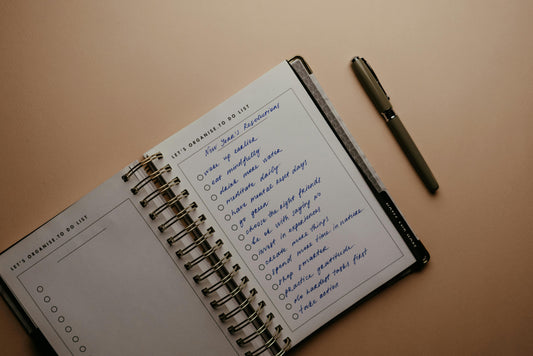 LET'S ORGANISE-TO DO LIST
LET'S ORGANISE-TO DO LIST
New Year's Resolutions
wake up earlier
eat mindfully
drink more water
meditate daily
have mental rest days
go green
choose the right friends
be ok with saying no
invest in experiences
create more things
spend more time in nature
shop smarter
practice gratitude
do hardest tasks first
take action